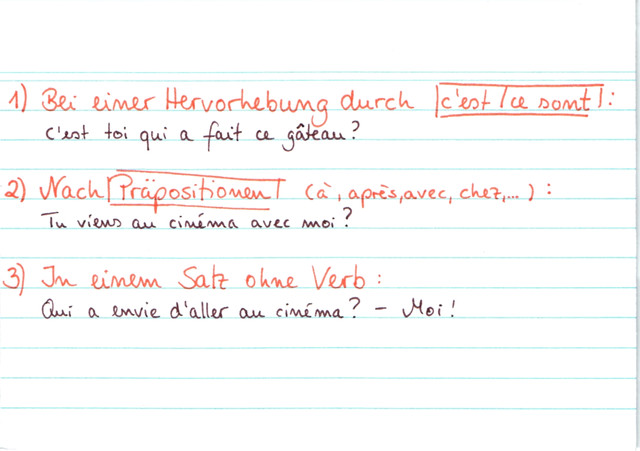 1) Bei einer Hervorhebung durch c'est / ce sont :
c'est toi qui a fait ce gâteau?
2) Nach Präpositionen (à, après, avec, chez,...) :
Tu viens au cinéma avec moi?
3) In einem Satz ohne Verb :
Qui a envie d'aller au cinéma? - Moi!